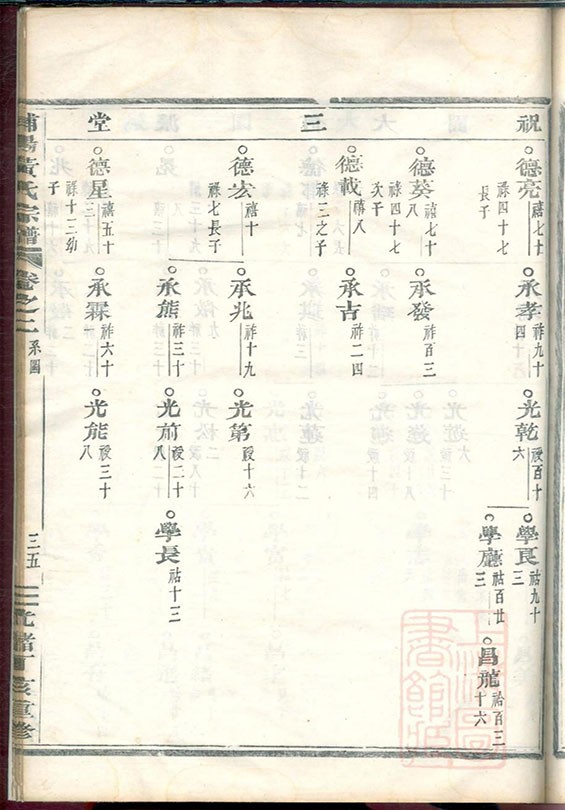 祝三堂
德亮 禧七十 祿四十七長子
承孝 祚九十四
光乾 祋百十六
學良 祜九十三
學應 祜百廿三
昌龍 祫百三十六
德葵 禧七十八 祿四十七次子
承發 祚百三
德載 禧八 祿三之子
承吉 祚二四
德宏 禧十 祿七長子
承兆 祚十九
光第 祋十六
承熊 祚三十
光前 祋二十八
學長 祜十三
德星 禧五十三 祿十三幼子
承霖 祚六十
光能 祋三十八
浦陽黃氏宗譜 卷之二 系圖 三五 光緒丁亥重修